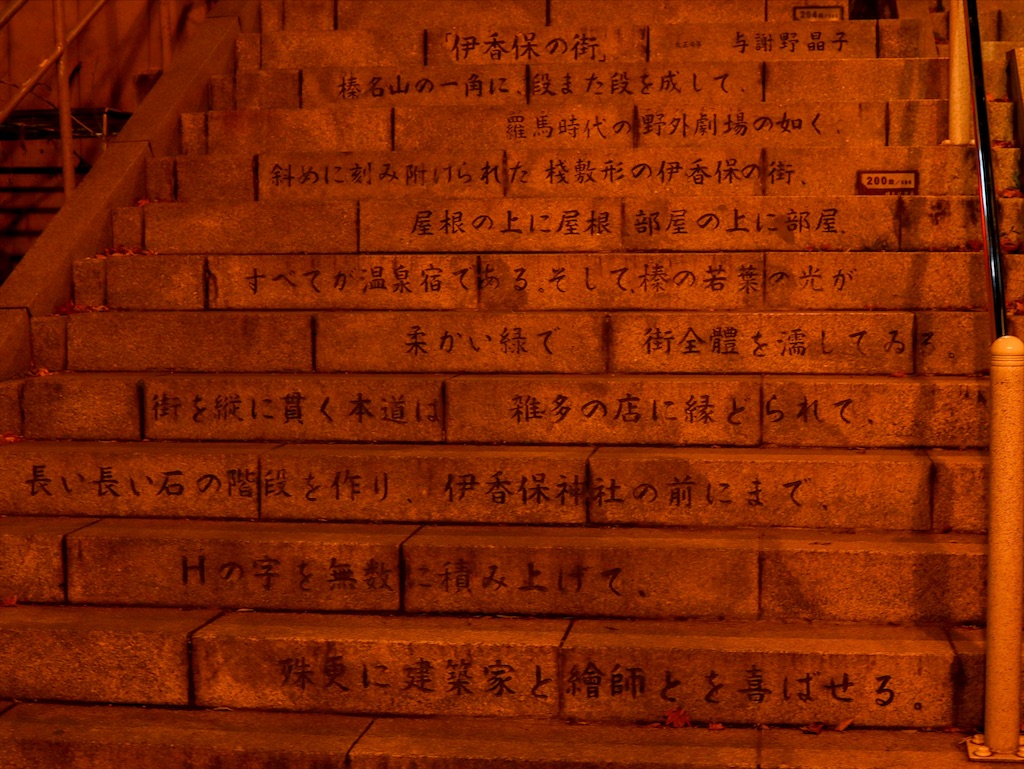 「伊香保の街」 与謝野晶子
榛名山の一角に、段また段を成して、
羅馬時代の野外劇場の如く、
斜めに刻み附けられた 棧敷形の伊香保の街、
200段
屋根の上に屋根 部屋の上に部屋、
すべてが温泉宿である。そして、榛の若葉の光が
柔かい緑で 街全體を濡してゐる。
街を縦に貫く本道は 雑多の店に縁どられて、
長い長い石の階段を作り、伊香保神社の前にまで、
Hの字を無數に積み上げて、
殊更に建築家と繪師とを喜ばせる。